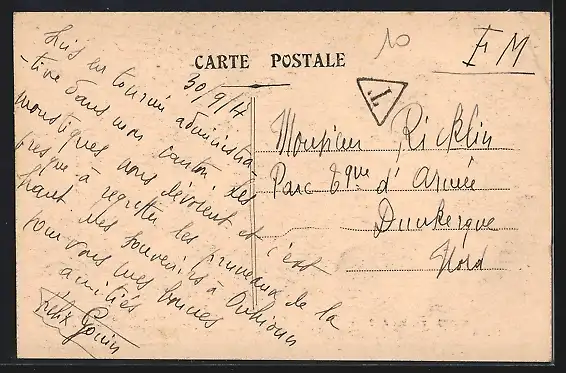 CARTE POSTALE
10
F M
T
30/9/14
Suis en tournée administra
-tive dans mon canton des
moustiques nous dévorent et c'est
presque à regretter les pruneaux de la
haut mes souvenirs à
pour vous mes bonnes
amitiés
Félix Gouin
Monsieur Ricklin
Parc d' Armée
Dunkerque
Nord